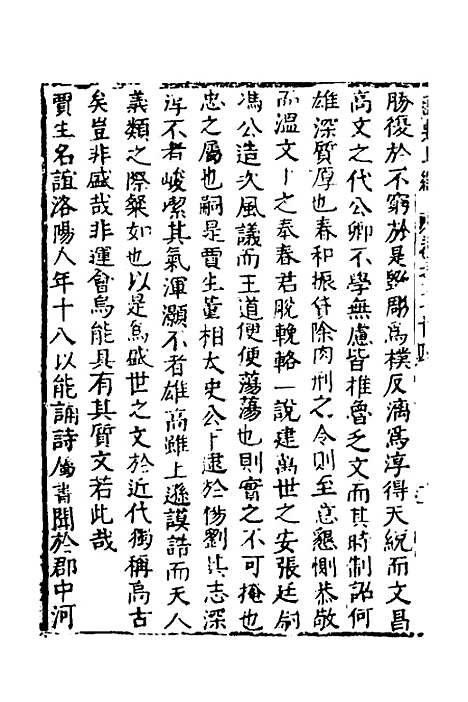 勝復於不窮於是斲彫為樸反漓為淳得天統而文昌
高文之代公卿不學無慮皆椎魯乏文而其時制詔何
雄深質厚也春和振貸除肉刑之令則至意懇惻恭敬
而溫文下之奉春君脫輓輅一說建萬世之安張廷尉
馮公造次風議而王道便便蕩蕩也則實之不可掩也
忠之屬也嗣是賈生董相太史公下逮於楊劉其志深
淳不者峻潔其氣渾灝不者雄高雖上遜謨誥而天人
義類之際粲如也以是為盛世之文於近代獨稱為古
矣豈非盛哉非運會烏能具有其質文若此哉
賈生名誼洛陽人年十八以能誦詩屬書聞於郡中河